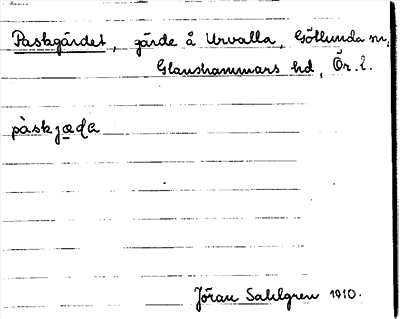 Paskgärdet, gärde å Urvalla, Götlunda sn,
Glanshammars hd, Ör. l.
påskjæda
Jöran Sahlgren 1910.